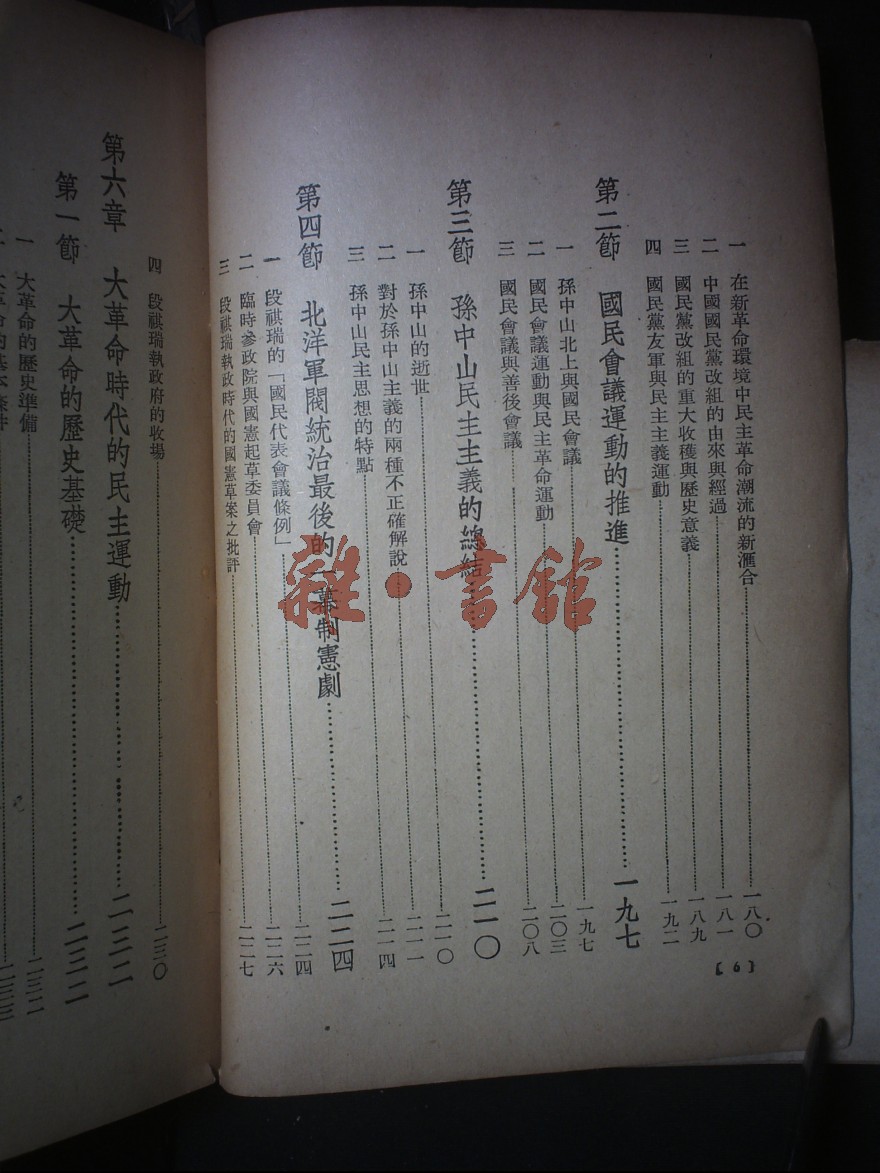 一 在新革命環境中民主革命潮流的新滙合 一八〇
二 中國國民黨改組的由來與經過 一八一
三 國民黨改組的重大收穫與歷史意義 一八九
四 國民黨友軍與民主主義運動 一九二
第二節 國民會議運動的推進 一九七
一 孫中山北上與國民會議 一九七
二 國民會議運動與民主革命運動 二〇三
三 國民會議與善後會議 二〇八
第三節 孫中山民主主義的總結 二一〇
一 孫中山的逝世 二一〇
二 對於孫中山主義的兩種不正確解說 二一一
三 孫中山民主思想的特點 二一四
第四節 北洋軍閥統治最後的一幕制憲劇 二二四
一 段祺瑞的「國民代表會議條例」 二二四
二 臨時參政院與國憲起草委員會 二二六
三 段祺瑞執政時代的國憲草案之批評 二二七
【6】
四 段祺瑞執政府的收場 二三〇
第六章 大革命時代的民主運動 二三二
第一節 大革命的歷史基礎 二三二
一 大革命的歷史準備 二三二
二 大革命的基本條件 二三三
雜·書館